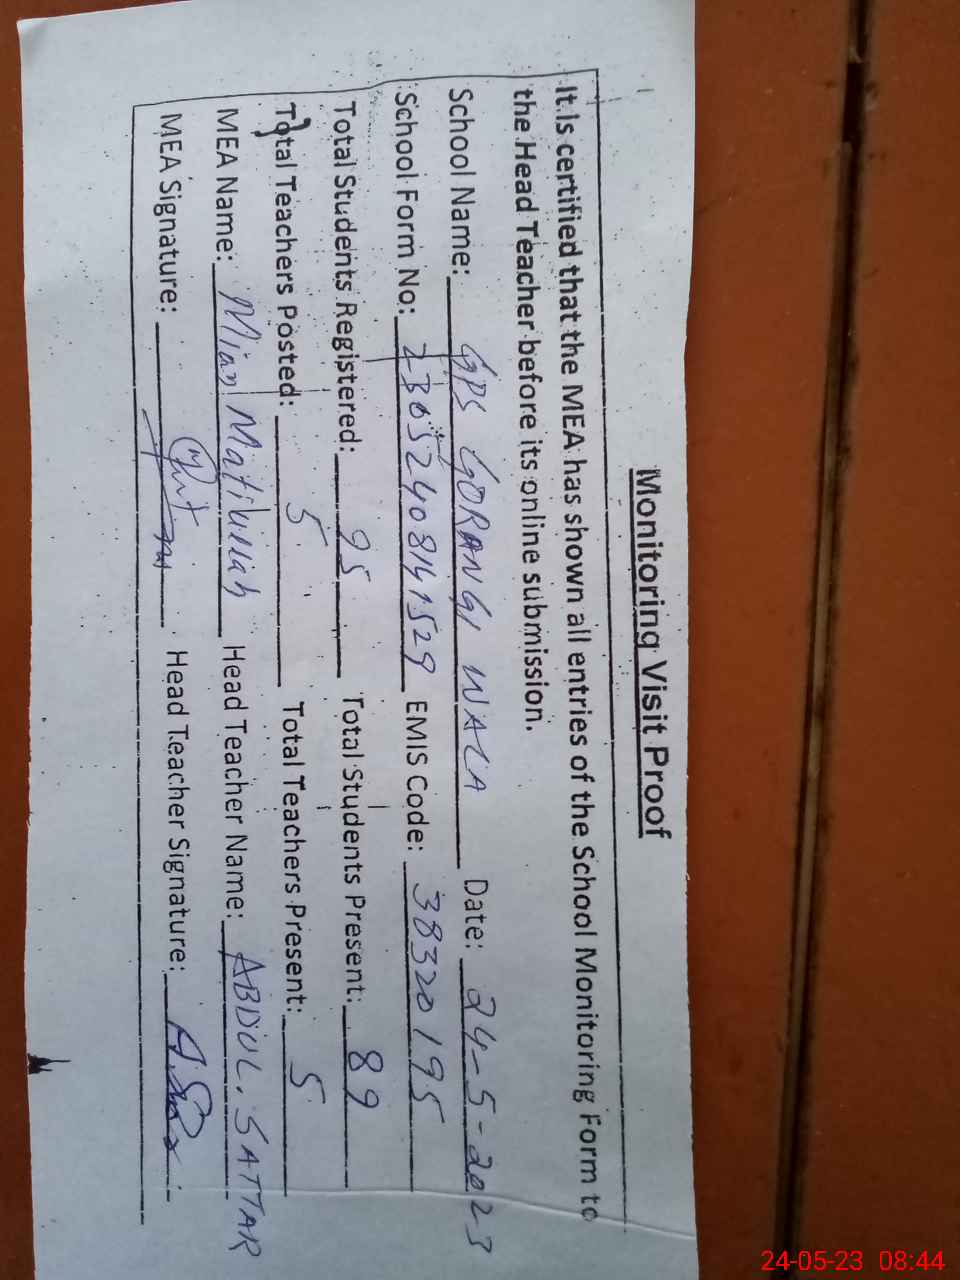 Monitoring Visit Proof
It is certified that the MEA has shown all entries of the School Monitoring Form to
the Head Teacher before its online submission.
School Name: GPS GORANGI WALA Date: 24-5-2023
School Form No: 23052408141529 EMIS Code: 38320195
Total Students Registered: 95 Total Students Present: 89
Total Teachers Posted: 5 Total Teachers Present: 5
MEA Name: Mian Matiullah Head Teacher Name: ABDUL. SATTAR
MEA Signature: Head Teacher Signature:
24-05-23 08:44